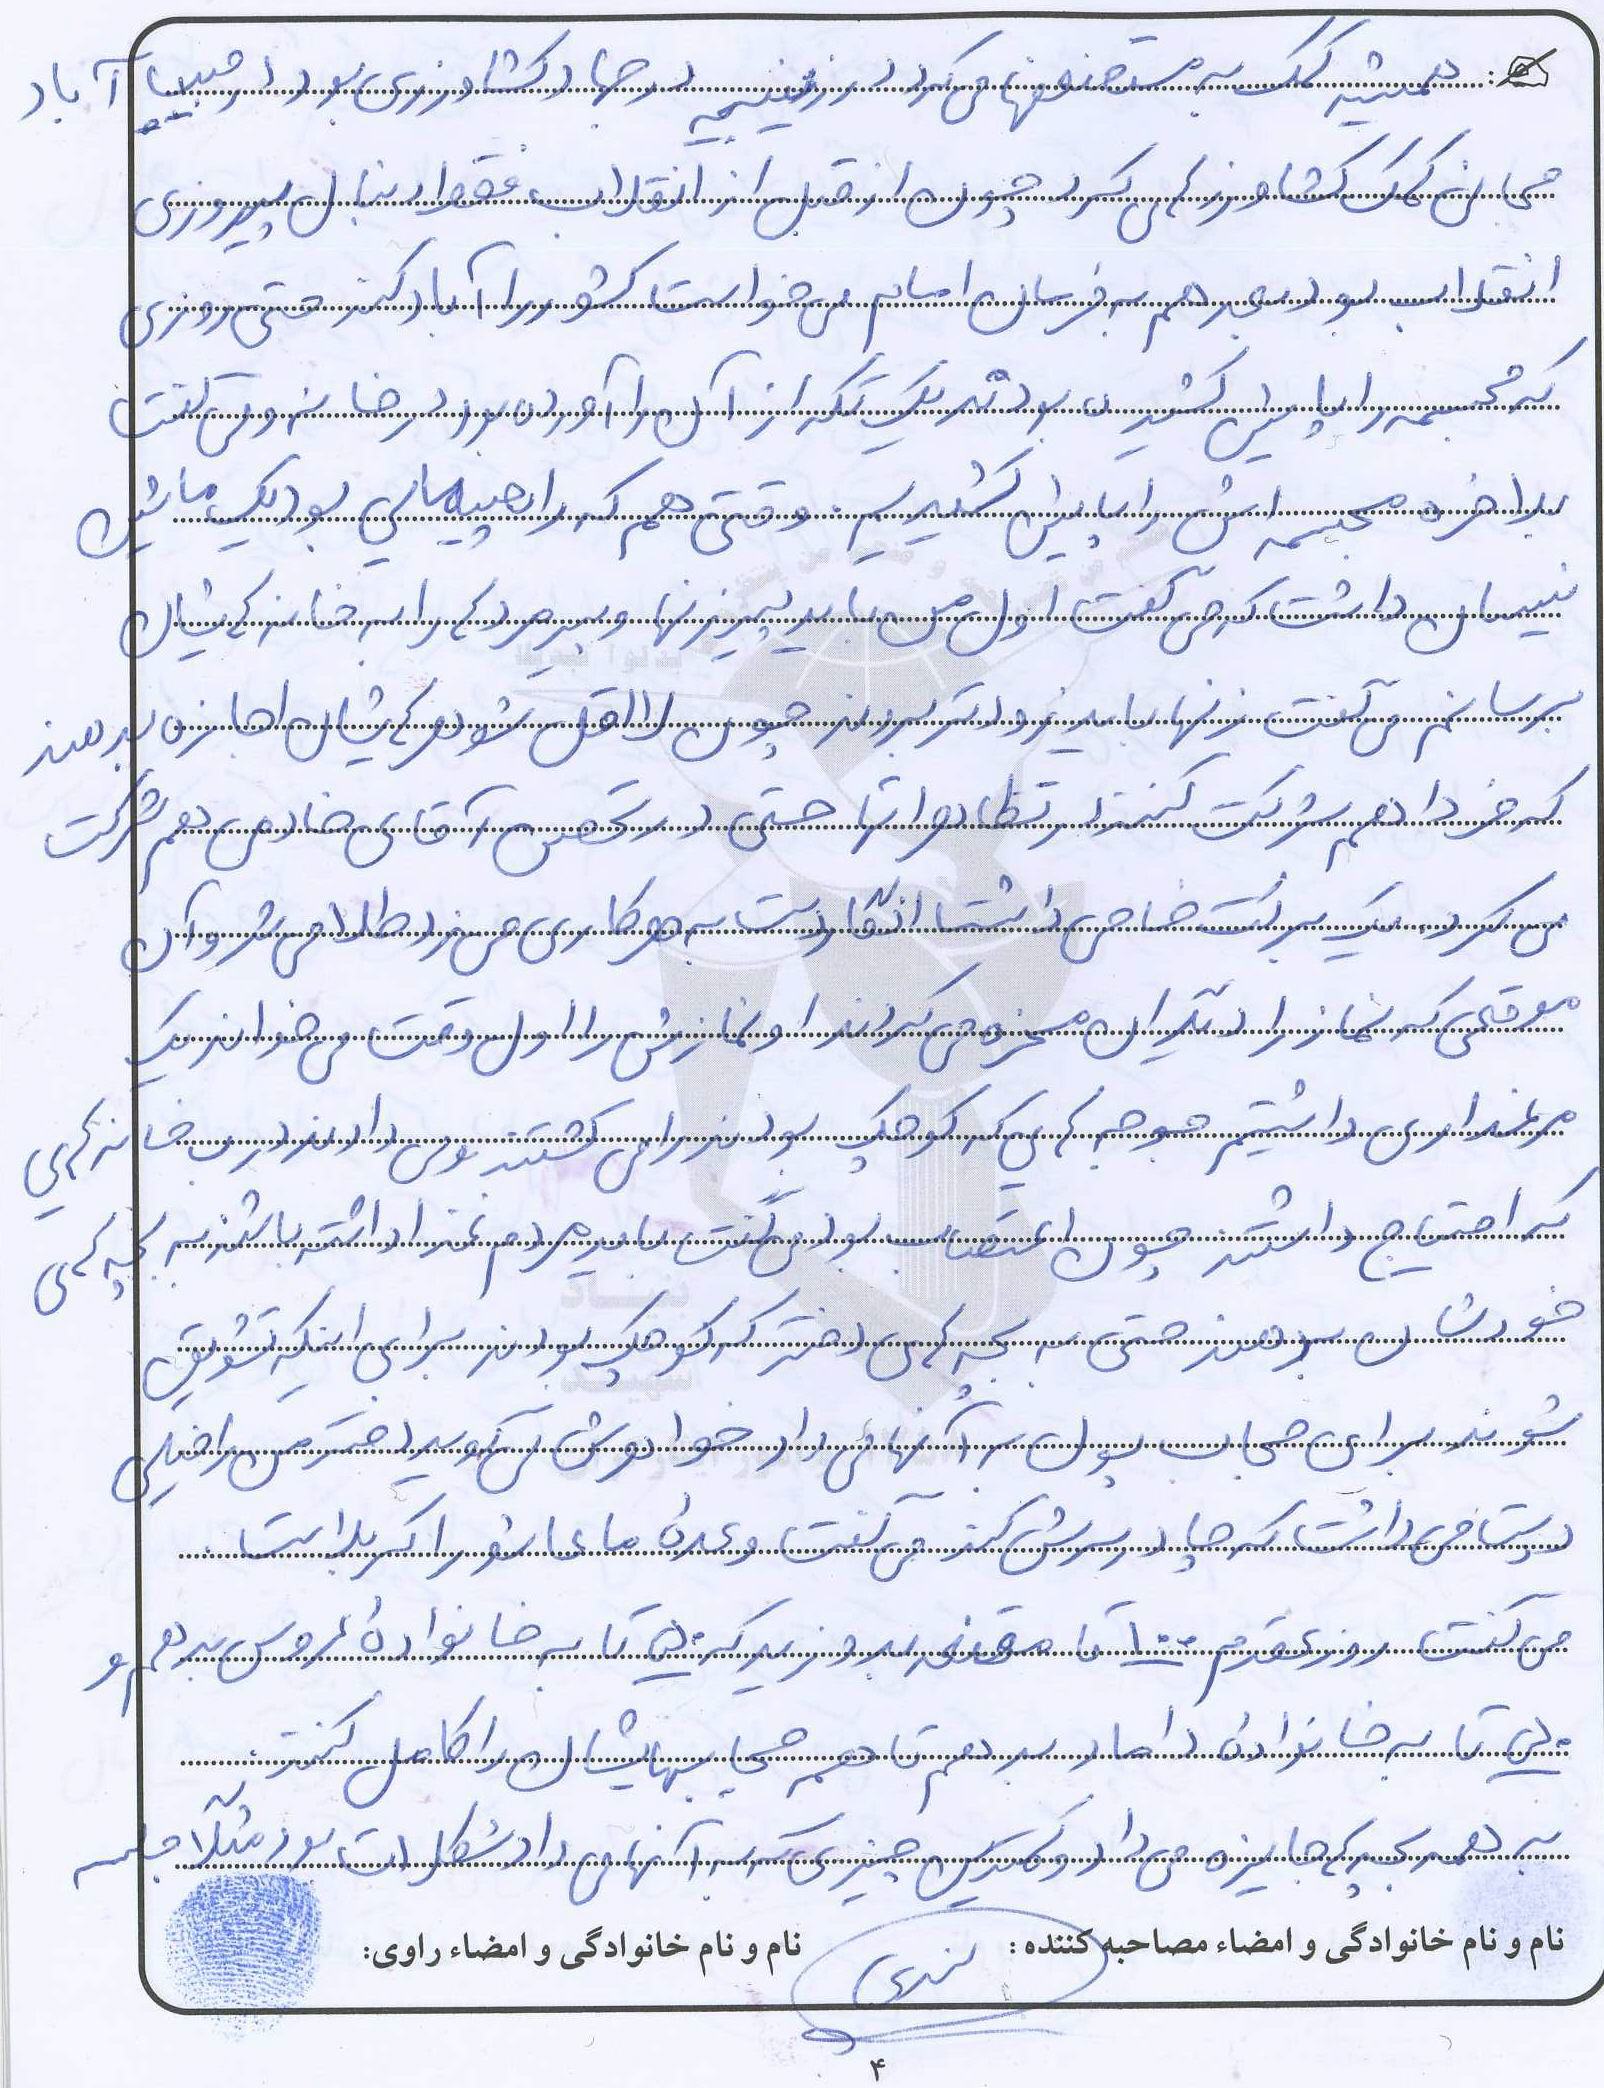 همیشه کمک به مستضعفها می‌کرد در زمینیمه در جهاد کشاورزی بود در حبیب آباد
مجانی کمک کشاورزها می کرد چون از قبل از انقلاب فقط دنبال پیروزی
انقلاب بود بعد هم به فرمان امام می خواست کشور را آباد کند حتی روزی
که مجسمه را پایین کشیده بودند یک تکه از آن را آورده بود در خانه و می گفت
بلاخره مجسمه اش را پایین کشیدیم. وقتی هم که راهپیمایی بود یک ماشین
نیسان داشت که می گفت اول من باید پیرزنها و پیرمردها را به خانه هایشان
برسانم می گفت زنها باید زودتر بروند چون لااقل شوهرهایشان اجازه بدهند
که فردا هم شرکت کنند در تظاهراتها حتی در تحصن آقای خادمی هم شرکت
می کرد. یک برکت خاصی داشت انگار دست به هر کاری می زد طلا می شد و آن
موقعی که نماز را دیگران مسخره می کردند او نمازش را اول وقت می خواند یک
مرغداری داشتیم جوجه هایی که کوچک بودند را می کشتند و می دادند درب خانه هایی
که احتیاج داشتند چون اعتصاب بود می گفت باید مردم غذا داشته باشند به بچه های
خودشان بدهند حتی به بچه های دختر که کوچک بودند برای اینکه تشویق
شوند برای حجاب پول به آنها می داد خواهرش می گوید دختر من را خیلی
دوست می داشت که چادر سرش کند می گفت وعدۀ ما عاشورا کربلا است.
می گفت روز عقدم ۱۰۰ تا مقنعه بدوزید که ۵۰ تا به خانوادۀ عروس بدهم و
۵۰ تا به خانوادۀ داماد بدهم تا همه حجابهایشان را کامل کنند.
به همه بچه ها جایزه می داد و کمترین چیزی که به آنها می داد شکلات بود مثلاً جلسه
نام و نام خانوادگی و امضاء مصاحبه کننده: نام و نام خانوادگی و امضاء راوی:
۴